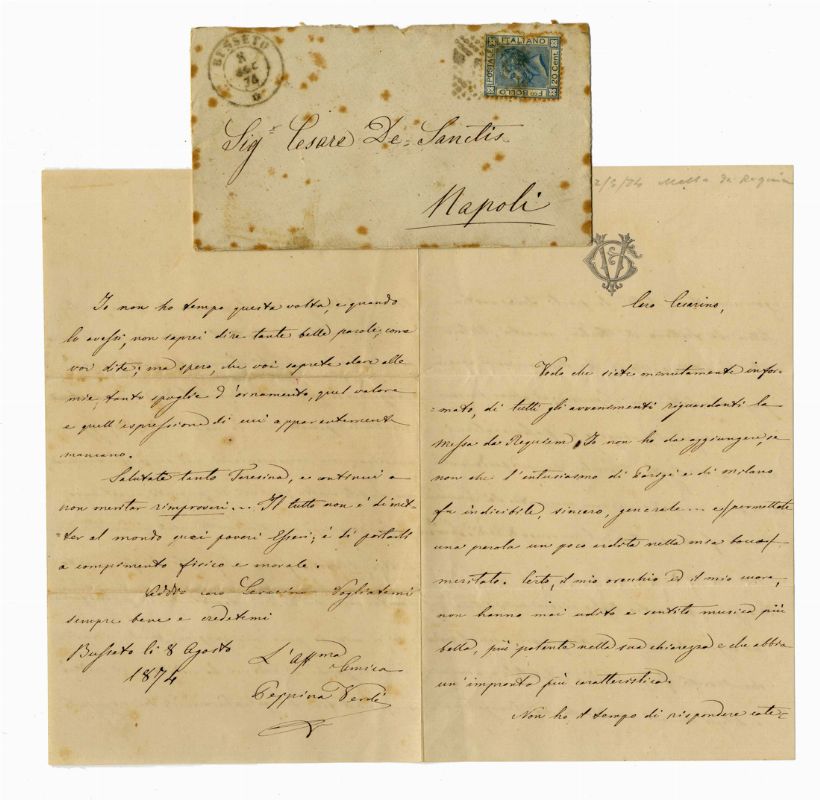 BUSSETO
8
74
POSTALE
ITALIANO
20 Cent.
Fco BOLLO
Sigr Cesare De=Sanctis
Napoli
2/8/74 Messa da Requiem
Caro Cesarino,
Vedo che siete minutamente infor-
=mato, di tutti gli avvenimenti riguardanti la
Messa da Requiem. Io non ho da aggiungere, se
non che l'entusiasmo di Parigi e di Milano
fu indicibile, sincero, generale.... e permettete
una parola un poco ardita nella mia bocca,
meritato. Certo, il mio orecchio ed il mio cuore,
non hanno mai udito e sentito musica più
bella, più potente nella sua chiarezza e che abbia
un'impronta più caratteristica.
Non ho il tempo di rispondere cate=
Io non ho tempo questa volta, e quando
lo avessi, non saprei dire tante belle parole, come
voi dite; ma spero, che voi saprete dare alle
mie, tanto spoglie d'ornamento, quel valore
e quell'espressione di cui apparentemente
mancano.
Salutate tanto Teresina, e continui a
non meritar rimproveri... Il tutto non è di met-
=ter al mondo quei poveri Esseri; è di portarli
a compimento fisico e morale.
Addio caro Cesarino Vogliatemi
sempre bene e credetemi
Busseto li 8 Agosto
1874
L'Affma
Amica
Peppina Verdi